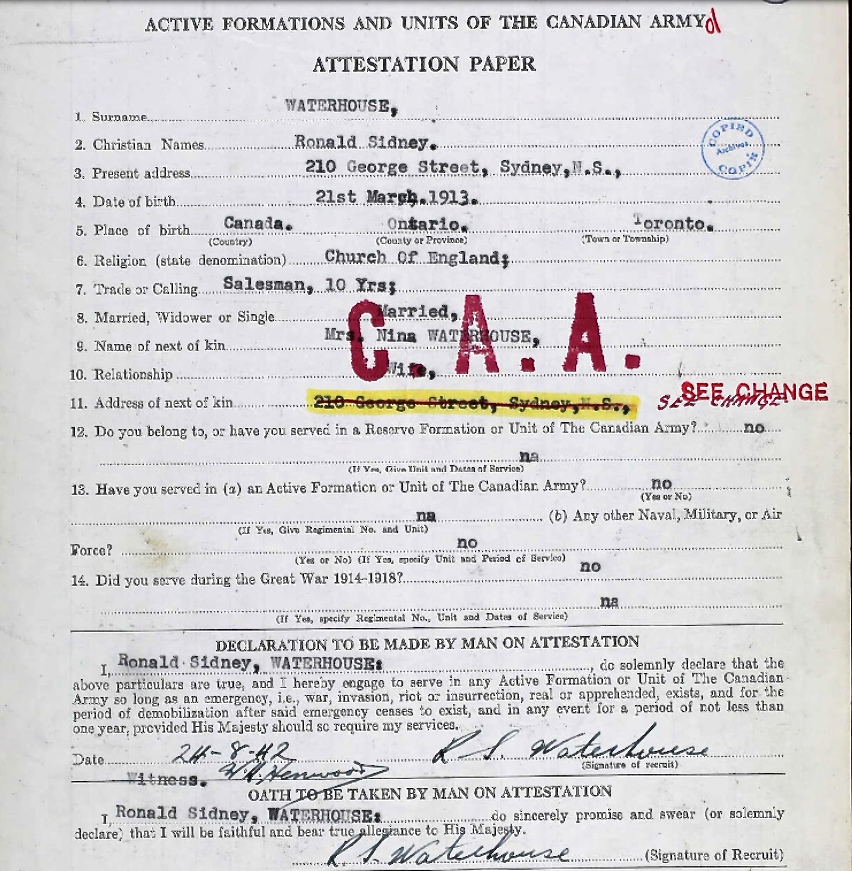 ACTIVE FORMATIONS AND UNITS OF THE CANADIAN ARMY
ATTESTATION PAPER
1. Surname WATERHOUSE,
2. Christian Names Ronald Sidney.
COPIED Archives COPIE
3. Present address 210 George Street, Sydney,N.S.,
4. Date of birth 21st March.1913.
5. Place of birth Canada. Ontario. Toronto.
(Country) (County or Province) (Town or Township)
6. Religion (state denomination) Church Of England;
7. Trade or Calling Salesman, 10 Yrs;
8. Married, Widower or Single Married,
C.A.A.
9. Name of next of kin Mrs. Nina WATERHOUSE,
10. Relationship Wife,
11. Address of next of kin 210 George Street, Sydney,N.S., SEE CHANGE SEE CHANGE
12. Do you belong to, or have you served in a Reserve Formation or Unit of The Canadian Army? no
na
(If Yes, Give Unit and Dates of Service)
13. Have you served in (a) an Active Formation or Unit of The Canadian Army? no
(Yes or No)
na (b) Any other Naval, Military, or Air
(If Yes, Give Regimental No. and Unit)
Force? no
(Yes or No) (If Yes, specify Unit and Period of Service)
14. Did you serve during the Great War 1914-1918? no
na
(If Yes, specify Regimental No., Unit and Dates of Service)
DECLARATION TO BE MADE BY MAN ON ATTESTATION
I, Ronald Sidney, WATERHOUSE; , do solemnly declare that the
above particulars are true, and I hereby engage to serve in any Active Formation or Unit of The Canadian
Army so long as an emergency, i.e., war, invasion, riot or insurrection, real or apprehended, exists, and for the
period of demobilization after said emergency ceases to exist, and in any event for a period of not less than
one year, provided His Majesty should so require my services.
Date 24-8-42 R S. Waterhouse
(Signature of recruit)
Witness.
OATH TO BE TAKEN BY MAN ON ATTESTATION
I, Ronald Sidney, WATERHOUSE; do sincerely promise and swear (or solemnly
declare) that I will be faithful and bear true allegiance to His Majesty.
R. S. Waterhouse (Signature of Recruit)